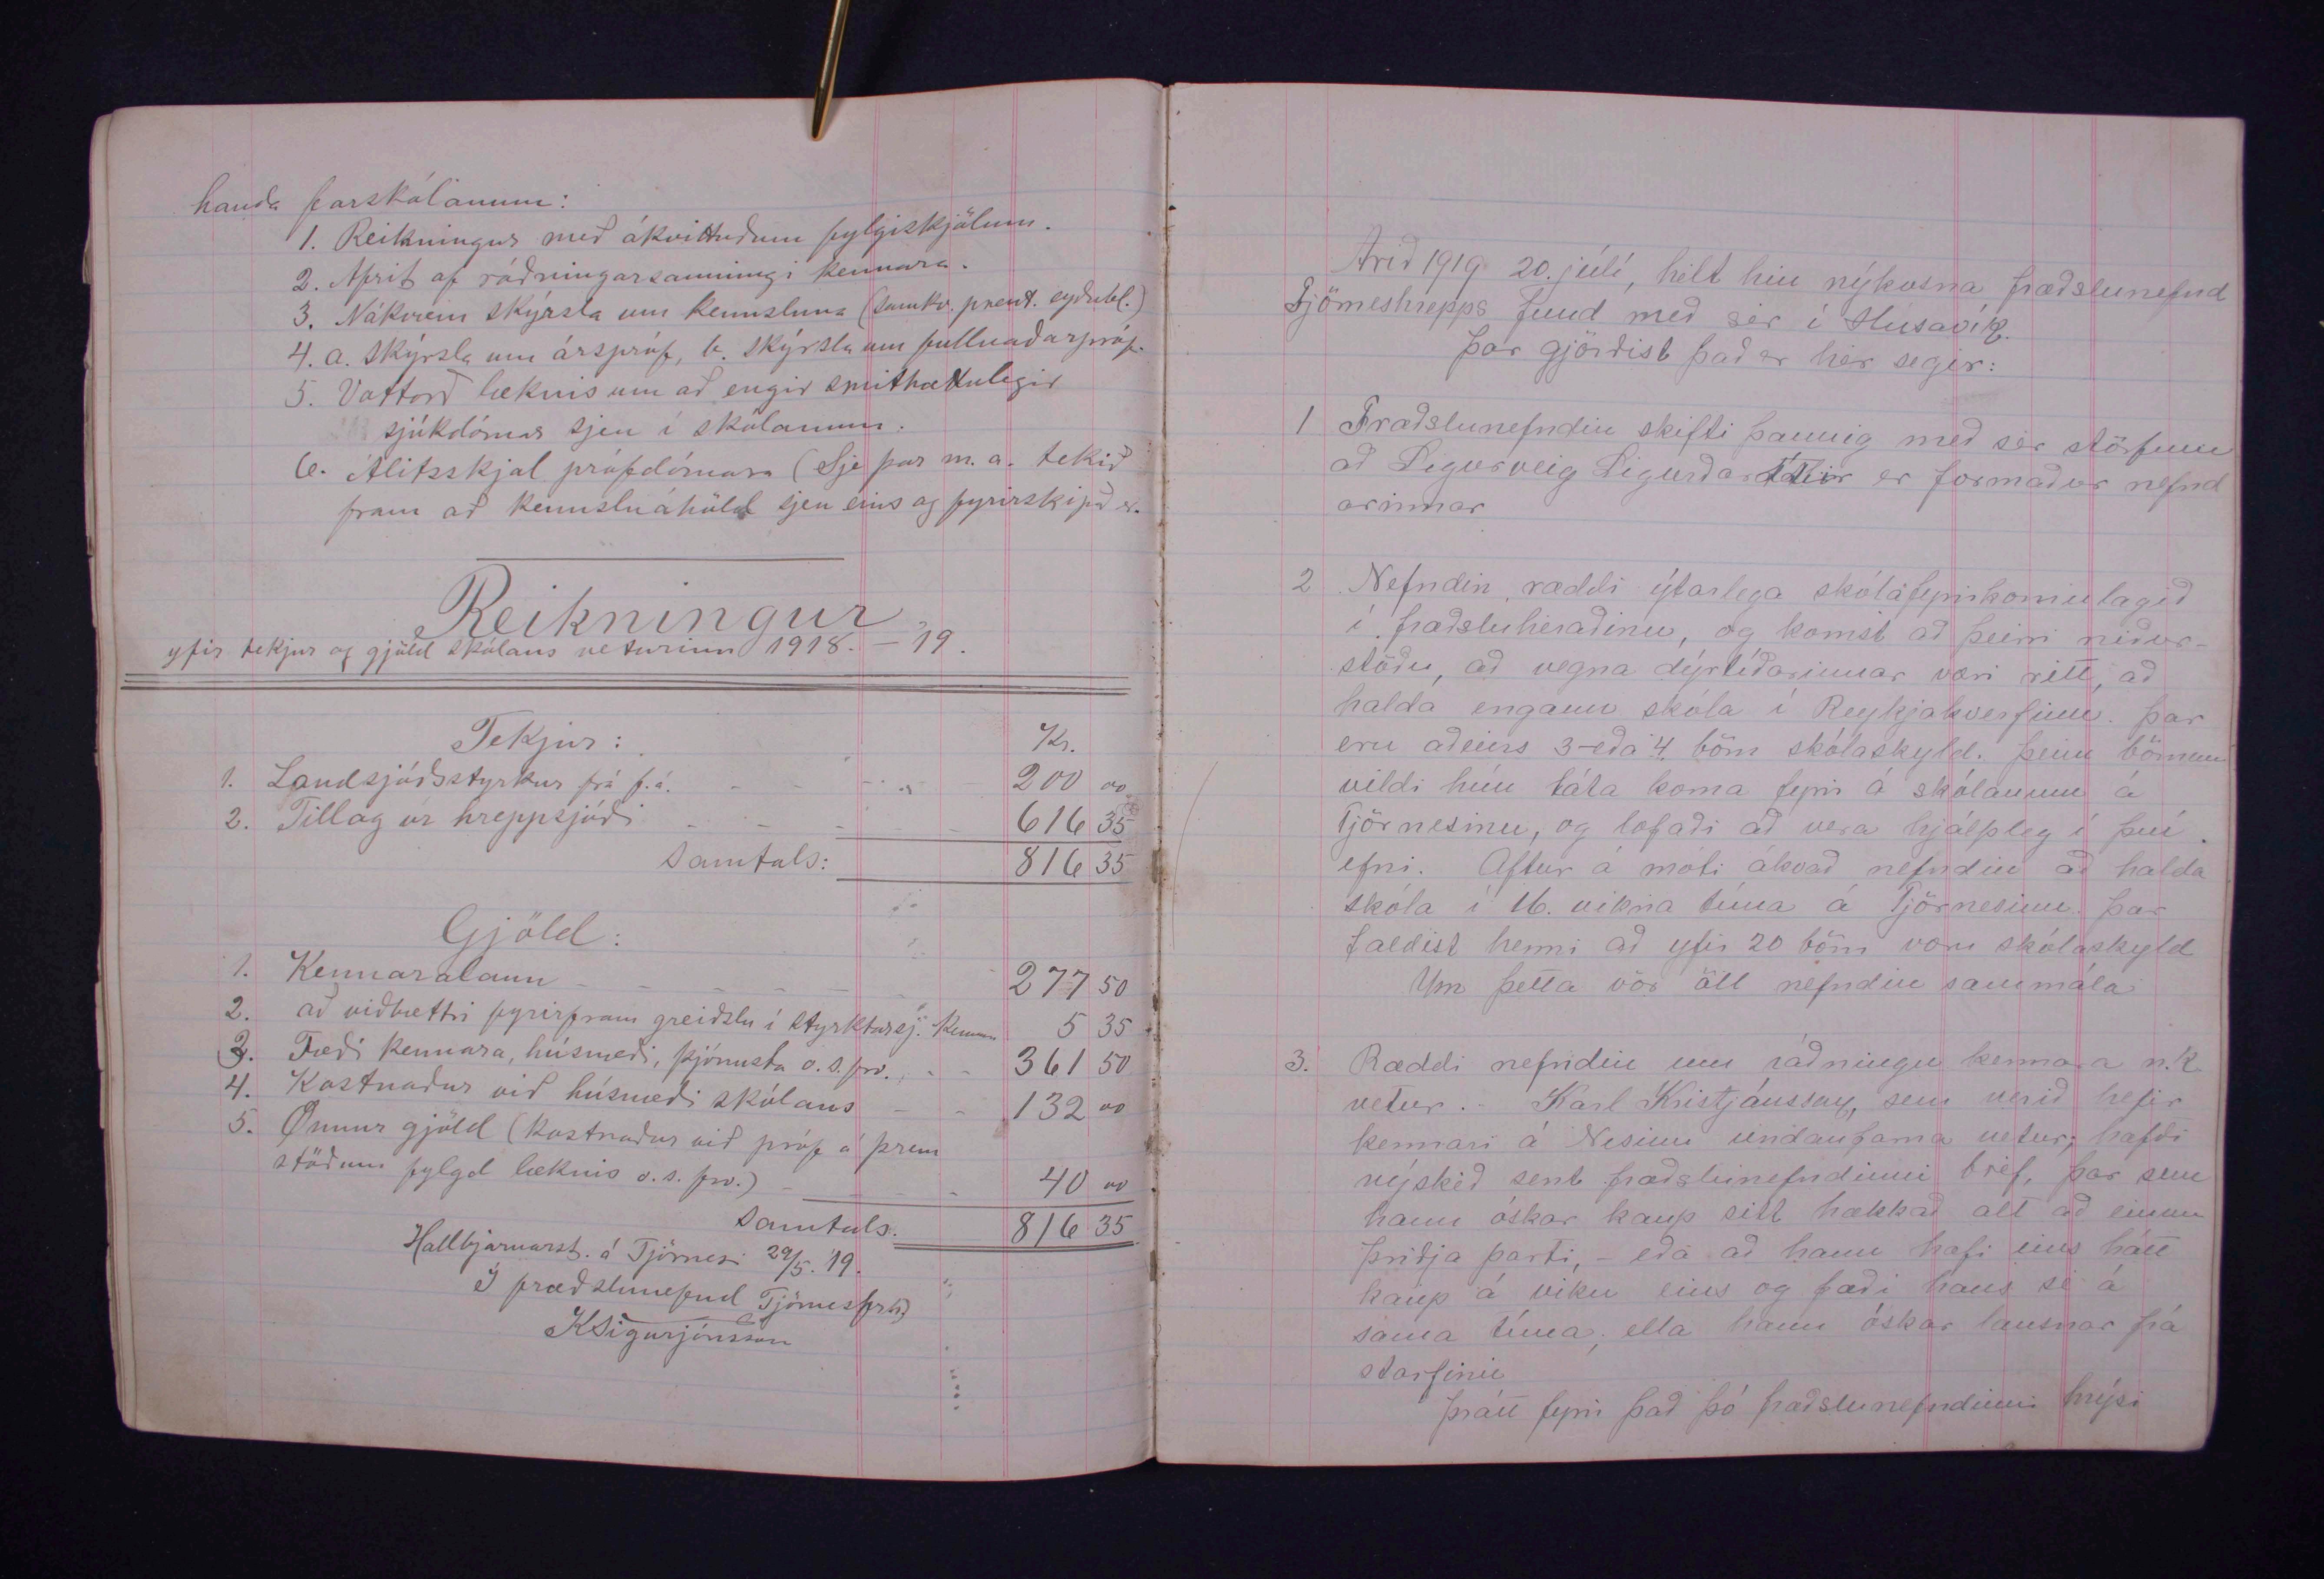 handa farskólanum:
1. Reikningur með ákvittuðum fylgiskjölum.
2. Afrit af ráðningarsamningi kennara.
3. Nákvæm skýrsla um kennsluna (samkv. prent. eyðubl.)
4. a. skýrsla um árspróf, b. skýrsla um fullnaðarpróf.
5. Vottorð læknis um að engir smithættulegir
sjúkdómar sjeu í skólanum.
6. Álitsskjal prófdómara (Sje þar m.a. tekið
fram að kennsluáhöld sjeu eins og fyrirskipð er.
Reikningur
yfir tekjur og gjöld skólans veturinn 1918. - '19.
Tekjur: Kr.
1. Landsjóðsstyrkur frá f.á. 200 00
2. Tillag úr hreppsjóði 616 35
Samtals: 816 35
Gjöld:
1. Kennaralaun 277 50
2. að viðbættri fyrirfram greiðslu í styrktarsj. kennara 5 35
3. Fæði kennara, húsnæði, þjónusta o.s.frv. 361 50
4. Kostnaður við húsnæði skólans 132 00
5. Önnur gjöld (kostnaður við próf á þrem
stöðum fylgd læknis o.s.frv.) 40 00
Samtals. 816 35
Hallbjarnarst. á Tjörnesi 29/5. '19.
Í fræðslunefnd Tjörnesfrhj
KSigurjónsson
Árið 1919 20. júlí, hélt hin nýkosna fræðslunefnd
Tjörneshrepps fund með sér í Húsavík.
Þar gjörðist það er hér segir:
1 Fræðslunefndin skifti þannig með sér störfum
að Sigurveig Sigurðardóttir er formaður nefnd
arinnar
2 Nefndin, ræddi ýtarlega skólafyrirkomulagið
í fræðsluhéraðinu, og komst að þeirri niður-
stöðu, að vegna dýrtíðarinnar væri rétt, að
halda engann skóla í Reykjahverfinu. Þar
eru aðeins 3-eða 4 börn skólaskyld. Þeim börnum
vildi hún láta koma fyrir á skólanum á
Tjörnesinu, og lofaði að vera hjálpleg í því
efni. Aftur á móti ákvað nefndin að halda
skóla í 16. vikna tíma á Tjörnesinu. Þar
taldist henni að yfir 20 börn voru skólaskyld
Um þetta vor öll nefndin sammála
3. Ræddi nefndin um ráðningu kennara n.k.
vetur. - Karl Kristjánsson, sem verið hefir
kennari á Nesinu undanfarna vetur; hafði
nýskeð sent fræðslunefndinni bréf, þar sem
hann óskar kaup sitt hækkað alt að einum
þriðja parti, - eða að hann hafi eins hátt
kaup á viku eins og fæði hans sé á
sama tíma, ella hann óskar lausnar frá
starfinu
Þrátt fyrir það þó fræðslunefndinni hrýsi